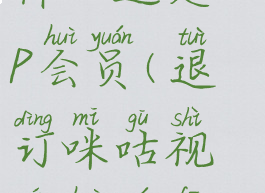 huì yuán tuì
P会员(退
dìng mī gū shì
订咪咕视